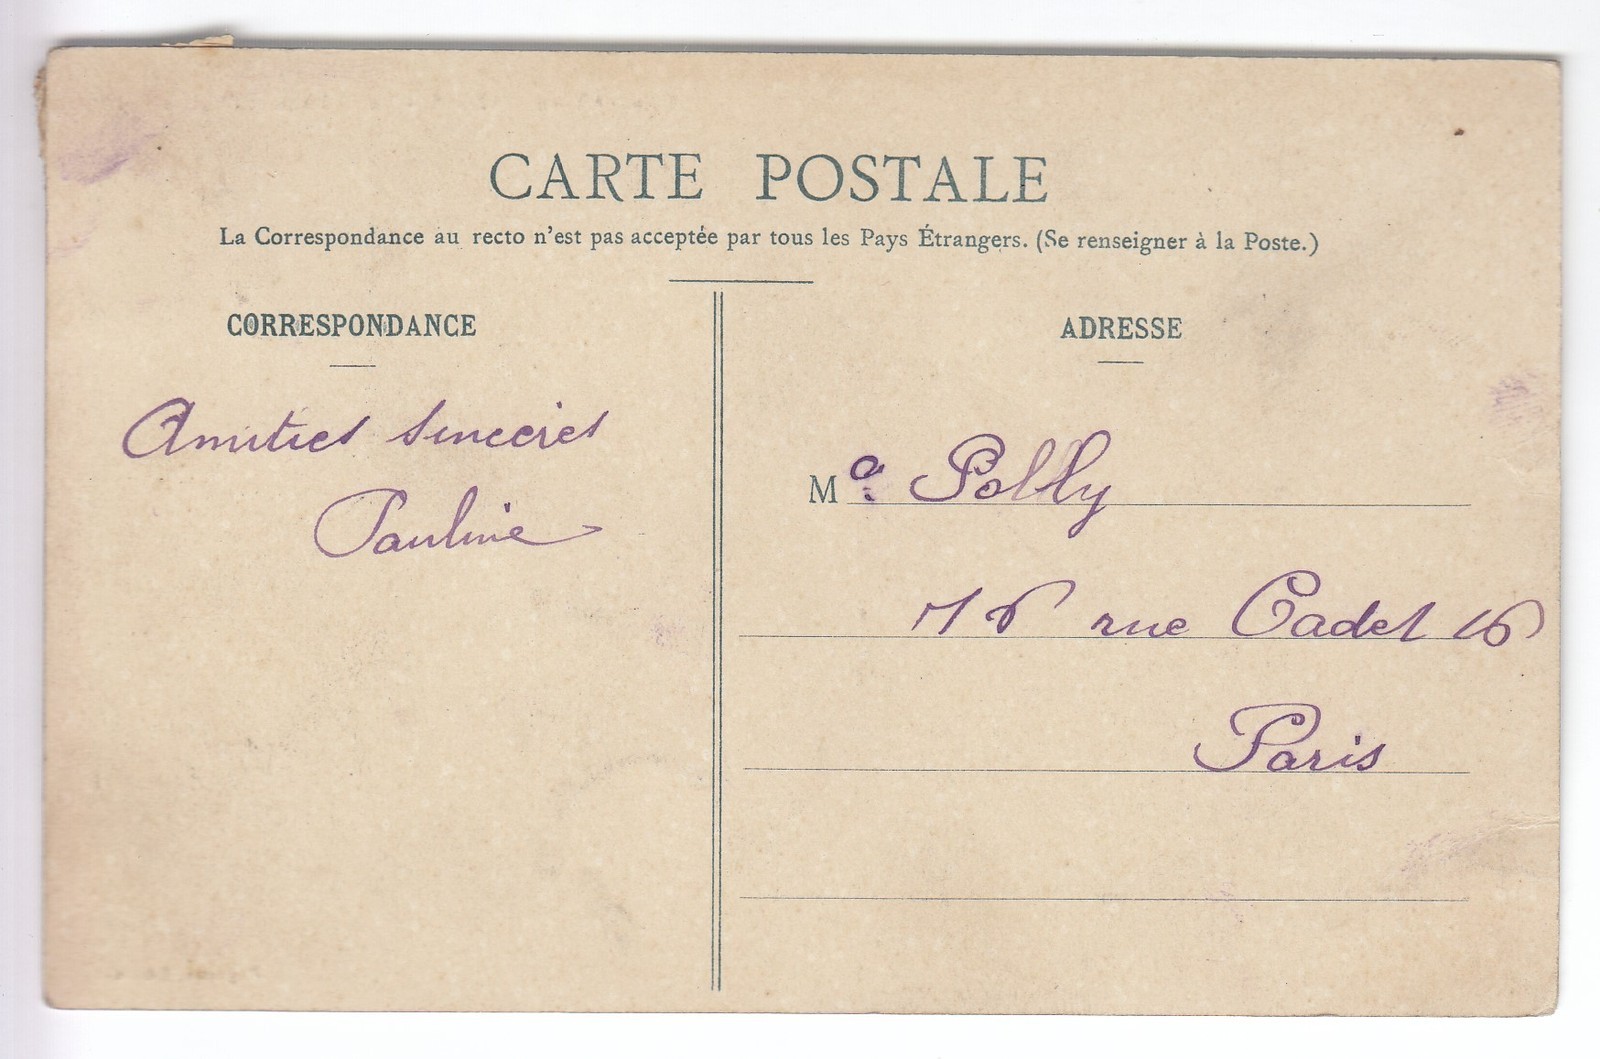 CARTE POSTALE
La Correspondance au recto n'est pas acceptée par tous les Pays Étrangers. (Se renseigner à la Poste.)
CORRESPONDANCE
ADRESSE
Amitiés sincères
Pauline
Me Polly
16 rue Cadet 16
Paris